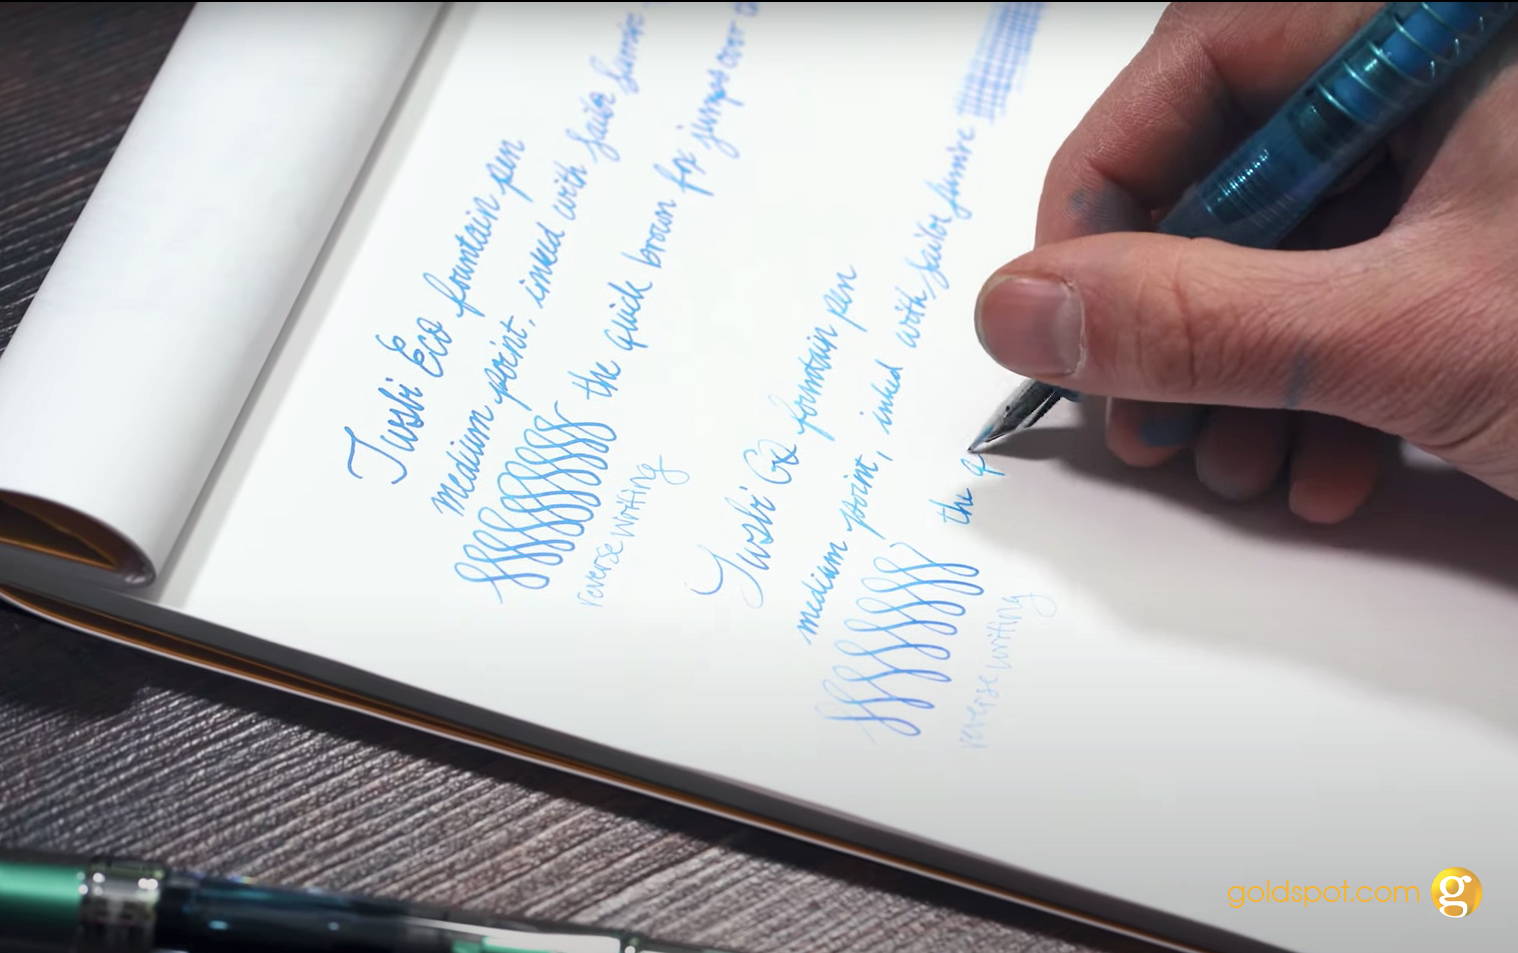 Twsbi Eco fountain pen
medium point, inked with Sailor
the quick brown fox jumps over
reverse writing
Twsbi GO fountain pen
medium point, inked with Sailor
the q
reverse writing
goldspot.com g